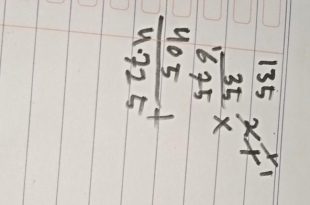 135
35 x
1675
405 +
4.725